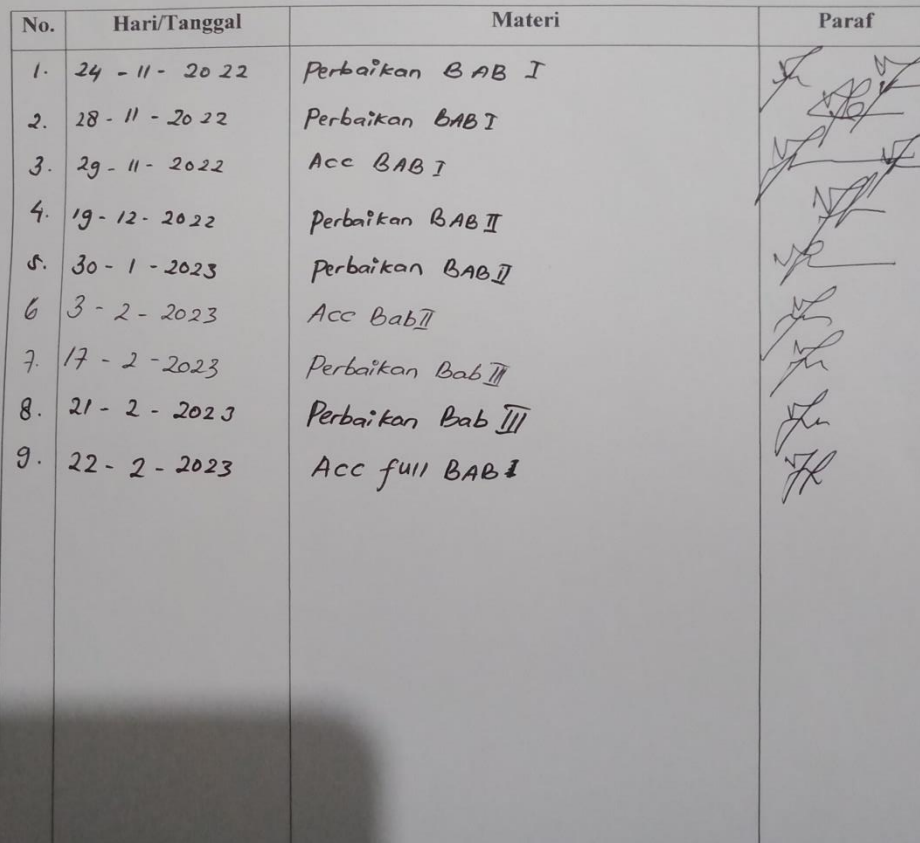 No. Hari/Tanggal Materi Paraf
1. 24 - 11 - 2022 Perbaikan BAB I
2. 28 - 11 - 2022 Perbaikan BAB I
3. 29 - 11 - 2022 Acc BAB I
4. 19 - 12 - 2022 Perbaikan BAB II
5. 30 - 1 - 2023 Perbaikan BAB II
6 3 - 2 - 2023 Acc Bab II
7. 17 - 2 - 2023 Perbaikan Bab III
8. 21 - 2 - 2023 Perbaikan Bab III
9. 22 - 2 - 2023 Acc full BAB I